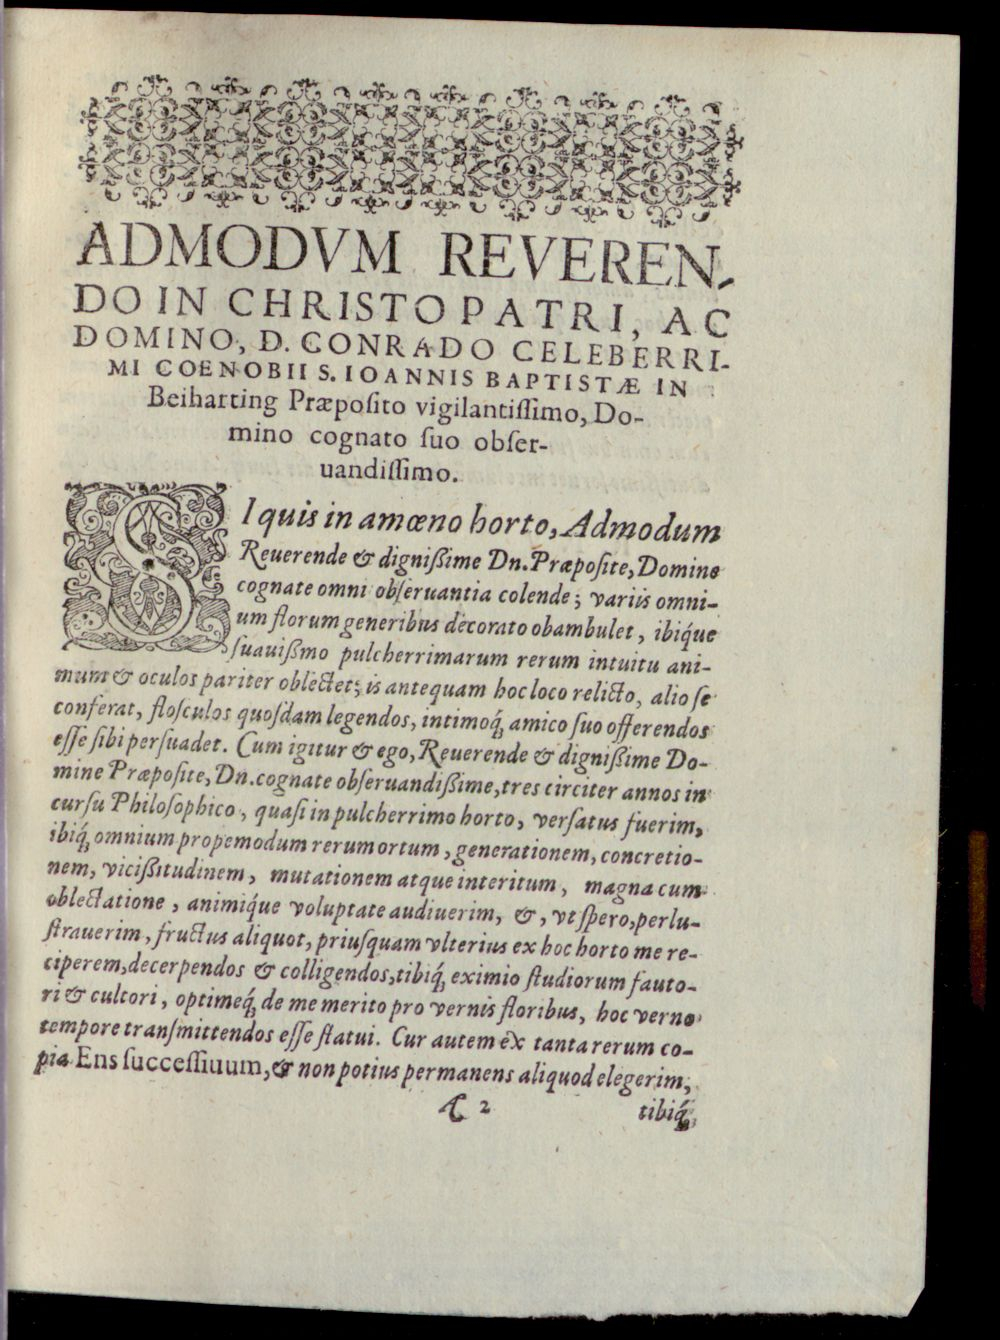 ADMODVM REVEREN-
DO IN CHRISTO PATRI, AC
DOMINO, D. CONRADO CELEBERRI-
MI COENOBII S. IOANNIS BAPTISTÆ IN
Beiharting Præposito vigilantiſſimo, Do-
mino cognato ſuo obſer-
uandiſſimo.
SI quis in amœno horto, Admodum
Reuerende & digniſſime Dn. Præpoſite, Domine
cognate omni obſeruantia colende; variis omni-
um florum generibus decorato obambulet, ibiq́ue
ſuauiſſmo pulcherrimarum rerum intuitu ani-
mum & oculos pariter oblectet; is antequam hoc loco relicto, alio ſe
conferat, floſculos quoſdam legendos, intimoq́; amico ſuo offerendos
eſſe ſibi perſuadet. Cum igitur & ego, Reuerende & digniſſime Do-
mine Præpoſite, Dn. cognate obſeruandiſſime, tres circiter annos in
curſu Philoſophico, quaſi in pulcherrimo horto, verſatus fuerim,
ibiq́; omnium propemodum rerum ortum, generationem, concretio-
nem, viciſſitudinem, mutationem atque interitum, magna cum
oblectatione, animiq́ue voluptate audiuerim, &, vt ſpero, perlu-
ſtrauerim, fructus aliquot, priuſquam vlterius ex hoc horto me re-
ciperem, decerpendos & colligendos, tibiq́; eximio ſtudiorum fauto-
ri & cultori, optimeq́; de me merito pro vernis floribus, hoc verno
tempore tranſmittendos eſſe ſtatui. Cur autem ex tanta rerum co-
pia Ens ſucceſſiuum, & non potius permanens aliquod elegerim,
A 2 tibiq́;